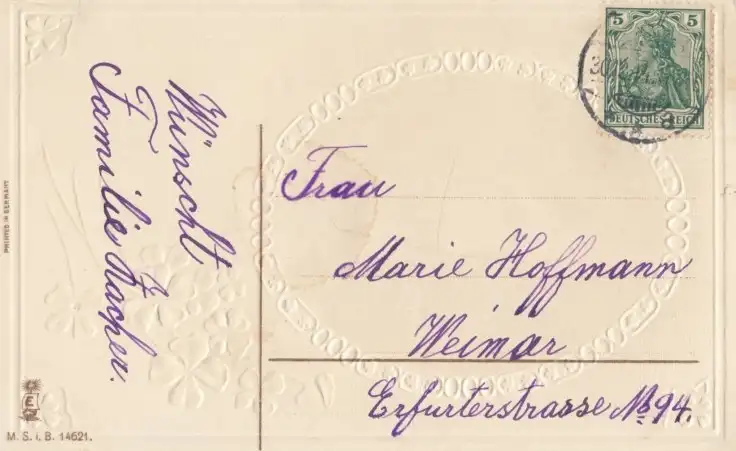 Wünscht
Familie Zacher.
5 5
DEUTSCHES REICH
Frau
Marie Hoffmann
Weimar
Erfurterstrasse № 94.
PRINTED IN GERMANY
E
M. S. i. B. 14621.